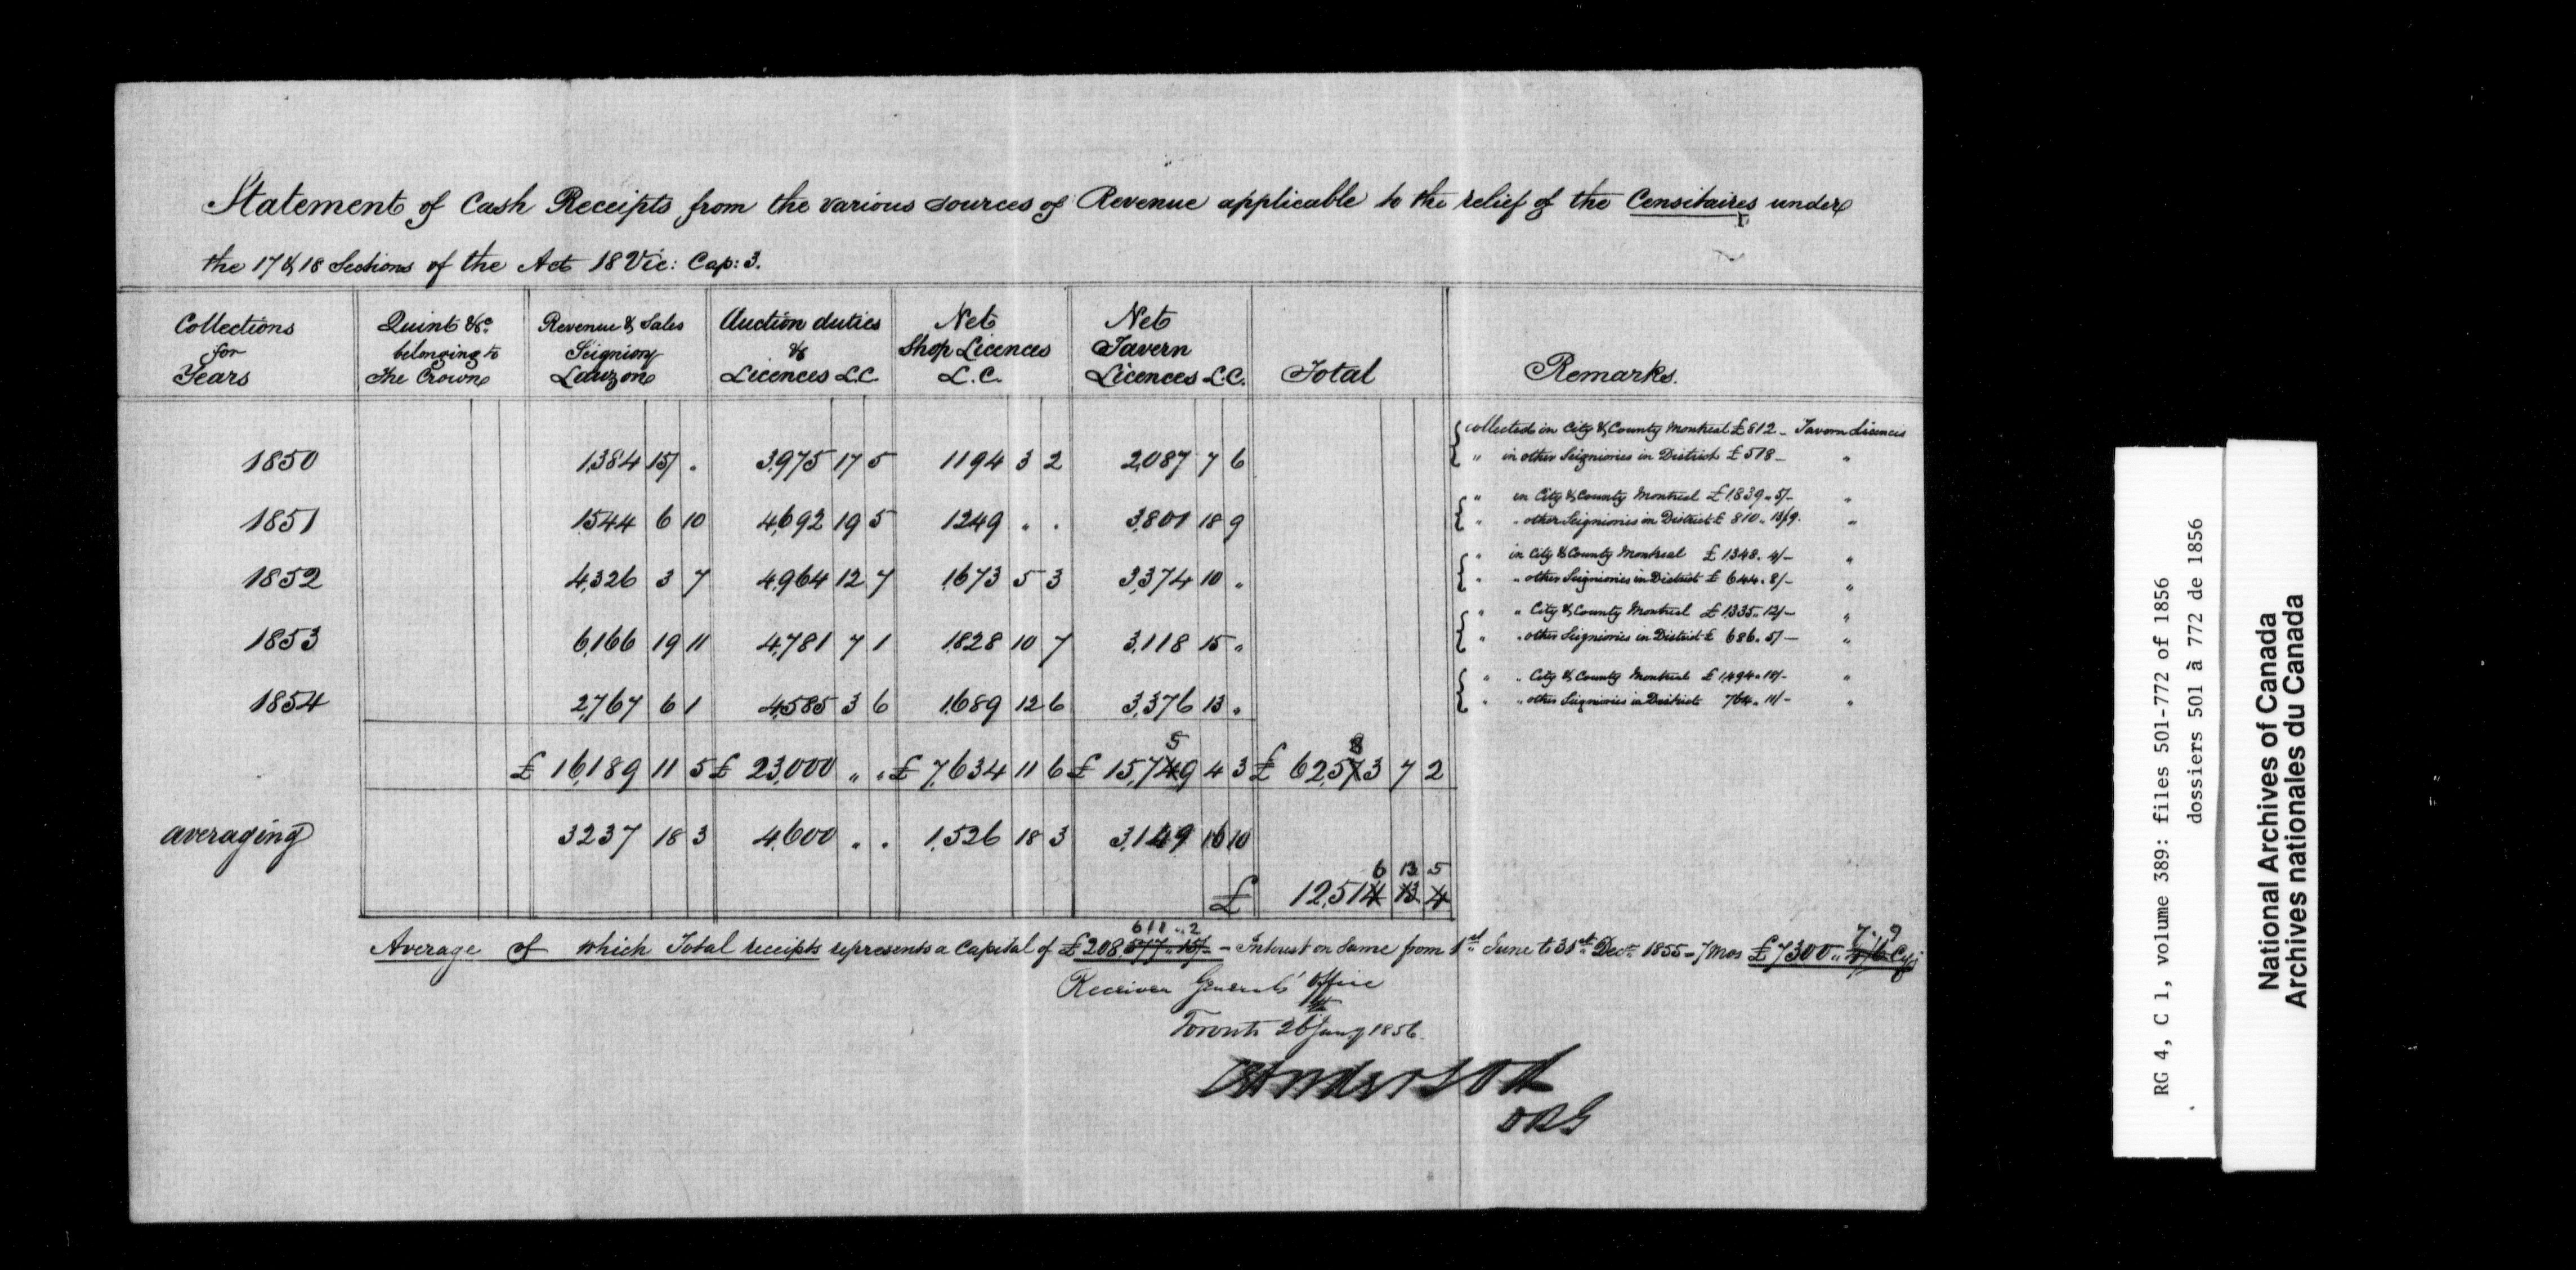 Statement of Cash Receipts from the various sources of Revenue applicable to the relief of the Censitaires under
the 17 & 18 Sections of the Act 18 Vic: Cap: 3.
Collections for Years | Quint &c. belonging to The Crown | Revenue & Sales Seigniory Lauzon | Auction duties & Licences L.C. | Net Shop Licences L.C. | Net Tavern Licences L.C. | Total | Remarks.
1850 | 1,384 15 " | 3,975 17 5 | 1194 3 2 | 2,087 7 6 | collected in City & County Montreal £812 - Tavern Licences
" in other Seigniories in District £578 - "
1851 | 1544 6 10 | 4,692 19 5 | 1249 " " | 3,801 18 9 | " in City & County Montreal £1,839 " 5/- "
" " other Seigniories in District £ 810 " 13/9. "
1852 | 4,326 3 7 | 4,964 12 7 | 1,673 5 3 | 3,374 10 " | " in City & County Montreal £1,348 " 4/- "
" " other Seigniories in District £ 644 " 8/- "
1853 | 6,166 19 11 | 4,781 7 1 | 1,828 10 7 | 3,118 15 " | " " City & County Montreal £1,335 " 12/- "
" " other Seigniories in District £ 686 " 5/- "
1854 | 2,767 6 1 | 4,585 3 6 | 1,689 12 6 | 3,376 13 " | " " City & County Montreal £1,494 " 10/- "
" " other Seigniories in District 764 " 11/- "
5 8
£ 16,189 11 5 £ 23,000 " " £ 7,634 11 6 £ 15,749 4 3 £ 62,573 7 2
averaging 3237 18 3 4,600 " " 1,526 18 3 3,149 16 10
6 13 5
£ 12,514 13 4
611 " 2 7 " 9
Average of which Total receipts represents a Capital of £208,577 " 15/- - Interest on Same from 1st June to 31st Decr 1855 - 7 Mos £7300 " 4/6 Cy
Receiver General's Office
Toronto 26th Jany 1856.
Anderson
DRG
RG 4, C 1, volume 389: files 501-772 of 1856
dossiers 501 à 772 de 1856
National Archives of Canada
Archives nationales du Canada